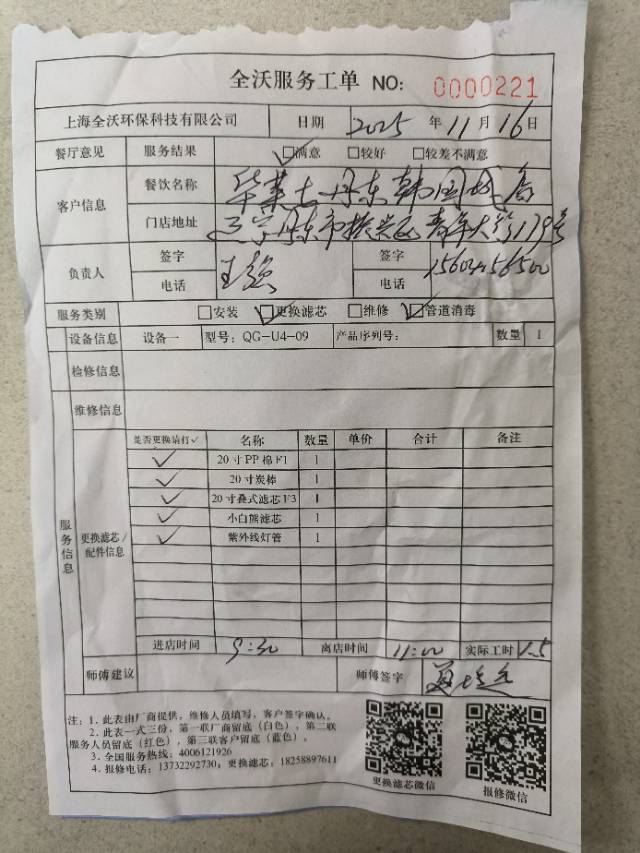 全沃服务工单 NO: 0000221
上海全沃环保科技有限公司 日期 2025 年 11 月 16 日
餐厅意见 服务结果 ☑满意 □较好 □较差不满意
客户信息 餐饮名称 华莱士丹东韩国城店
门店地址 辽宁丹东市振兴区青年大街179号
负责人 签字 签字
电话 电话
服务类别 □安装 ☑更换滤芯 □维修 ☑管道消毒
设备信息 设备一 型号: QG-U4-09 产品序列号: 数量 1
检修信息
维修信息
服务信息
更换滤芯/配件信息
是否更换请打✓ 名称 数量 单价 合计 备注
✓ 20寸PP棉F1 1
✓ 20寸炭棒 1
✓ 20寸叠式滤芯F3 1
✓ 小白熊滤芯 1
✓ 紫外线灯管 1
进店时间 9:30 离店时间 11:00 实际工时 1.5
师傅建议 师傅签字
注: 1. 此表由厂商提供, 维修人员填写, 客户签字确认。
2. 此表一式三份, 第一联厂商留底(白色), 第二联
服务人员留底(红色), 第三联客户留底(蓝色)。
3. 全国服务热线: 4006121926
4. 报修电话: 13732292730; 更换滤芯: 18258897611
更换滤芯微信
报修微信